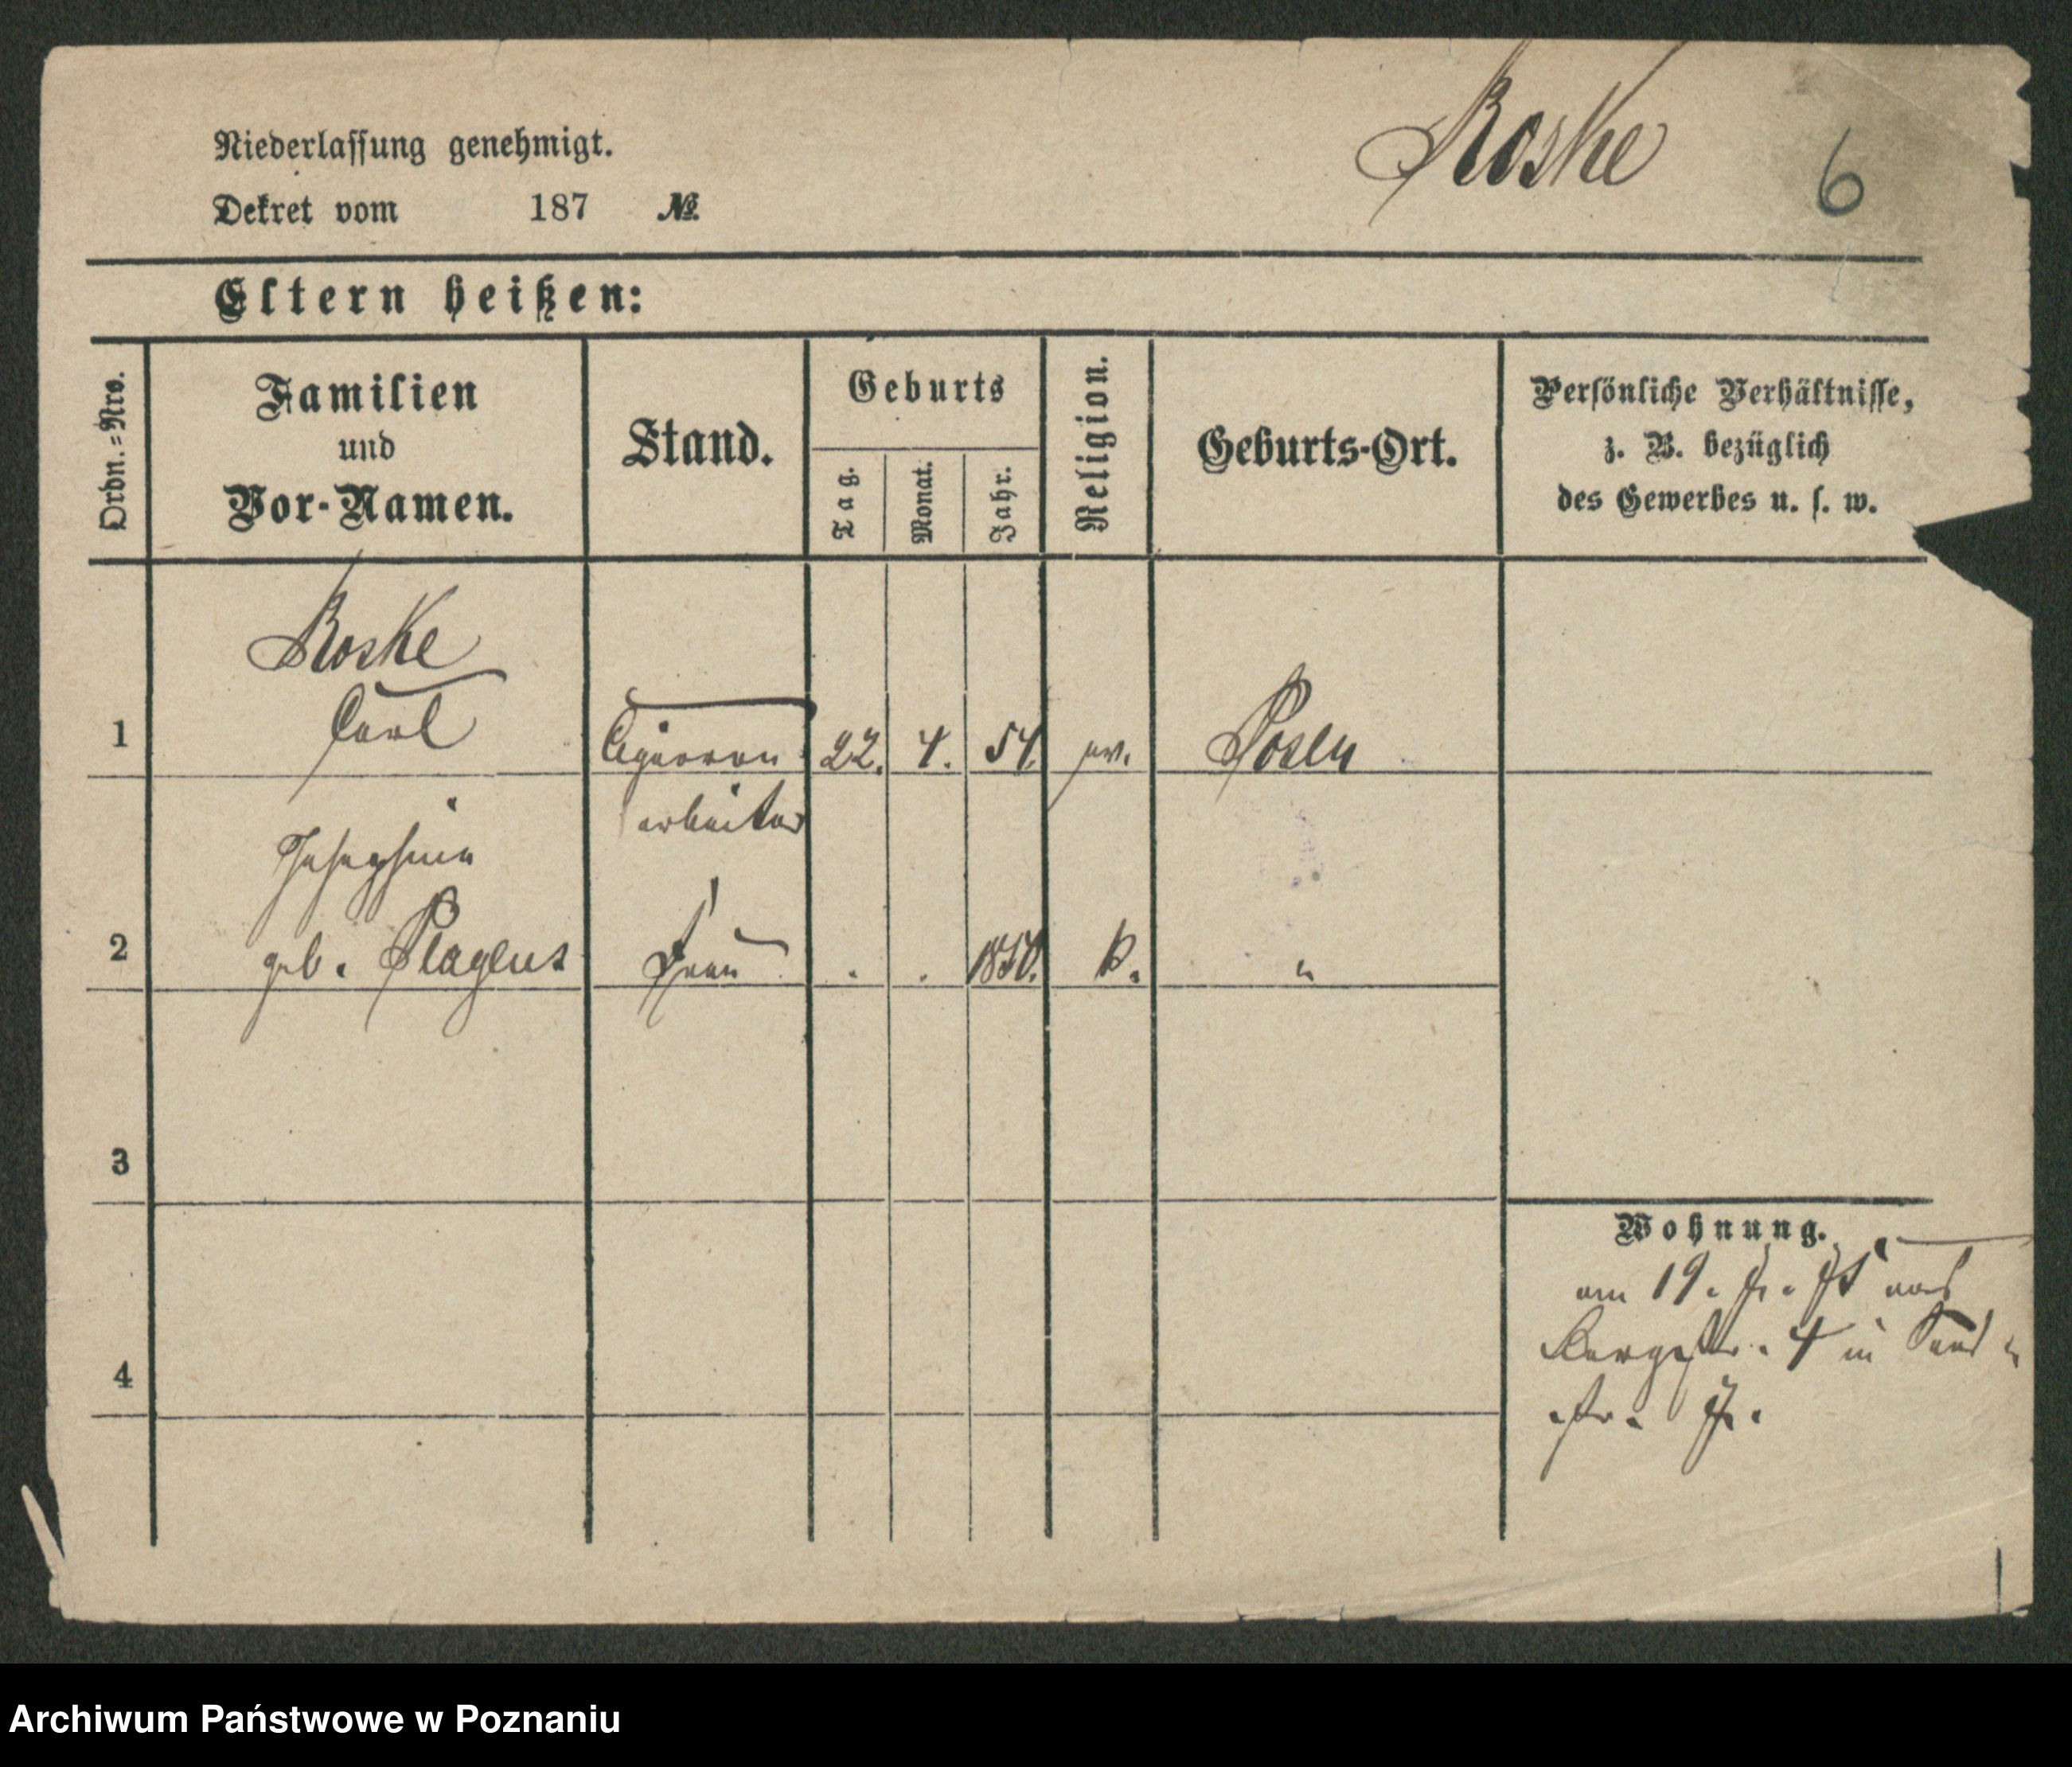 Niederlassung genehmigt.
Dekret vom 187 №.
Roske
6
Eltern heißen:
Ordn.=Nro.
Familien
und
Vor-Namen.
Stand.
Geburts
Tag.
Monat.
Jahr.
Religion.
Geburts-Ort.
Persönliche Verhältnisse,
z. B. bezüglich
des Gewerbes u. s. w.
Roske
1 Carl Cigarren 22. 4. 54. ev. Posen
arbeiter
Josephine
2 geb. Plagens Frau . . 1850. k. "
3
Wohnung.
am 19.
4 in
4
str.
Archiwum Państwowe w Poznaniu